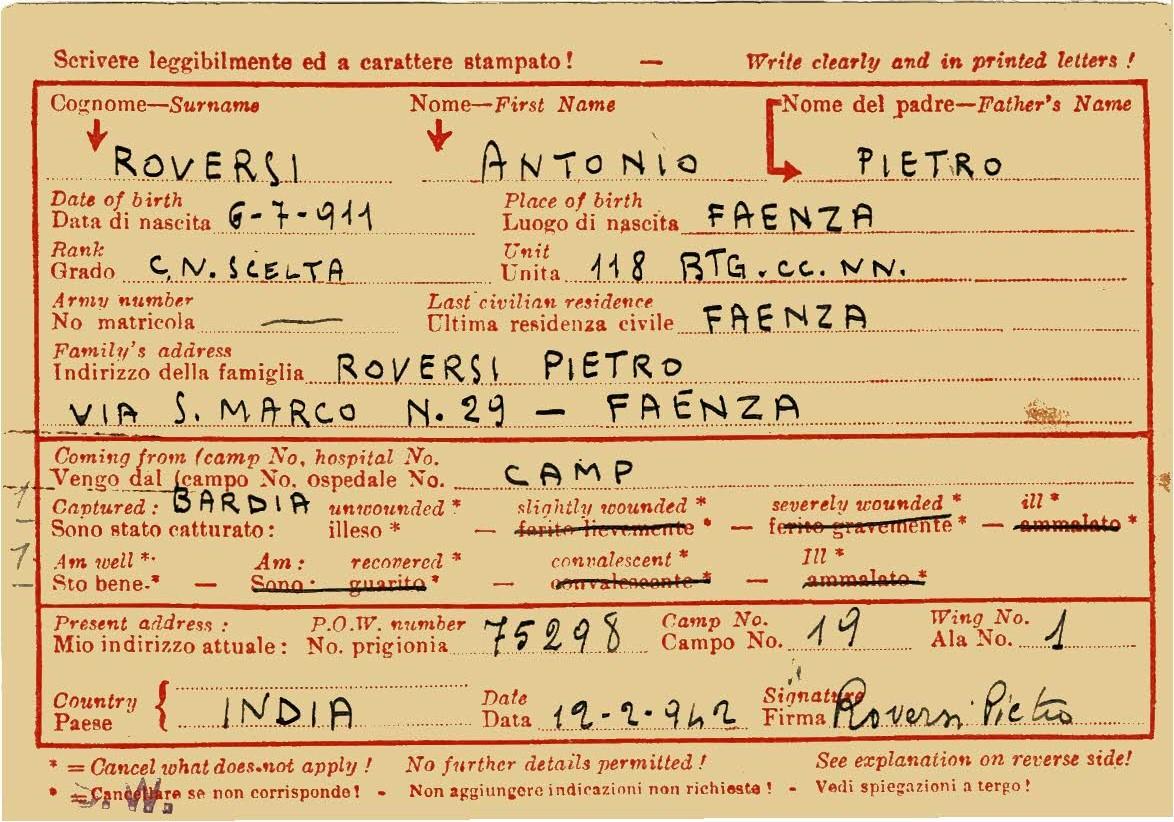 Scrivere leggibilmente ed a carattere stampato! — Write clearly and in printed letters!
Cognome—Surname Nome—First Name Nome del padre—Father's Name
ROVERSI ANTONIO PIETRO
Date of birth Place of birth
Data di nascita 6-7-911 Luogo di nascita FAENZA
Rank Unit
Grado C.N. SCELTA Unita 118 BTG. CC. NN.
Army number Last civilian residence
No matricola — Ultima residenza civile FAENZA
Family's address
Indirizzo della famiglia ROVERSI PIETRO
VIA S. MARCO N. 29 — FAENZA
Coming from (camp No, hospital No.
Vengo dal (campo No, ospedale No. CAMP
Captured: BARDIA unwounded * slightly wounded * severely wounded * ill *
Sono stato catturato: illeso * — ferito lievemente * — ferito gravemente * — ammalato *
Am well * Am: recovered * convalescent * Ill *
Sto bene * — Sono: guarito * — convalescente * — ammalato *
Present address: P.O.W. number Camp No. Wing No.
Mio indirizzo attuale: No. prigionia 75298 Campo No. 19 Ala No. 1
Country Date Signature
Paese { INDIA Data 12-2-942 Firma Roversi Pietro
* = Cancel what does not apply! No further details permitted! See explanation on reverse side!
* = Cancellare se non corrisponde! - Non aggiungere indicazioni non richieste! - Vedi spiegazioni a tergo!